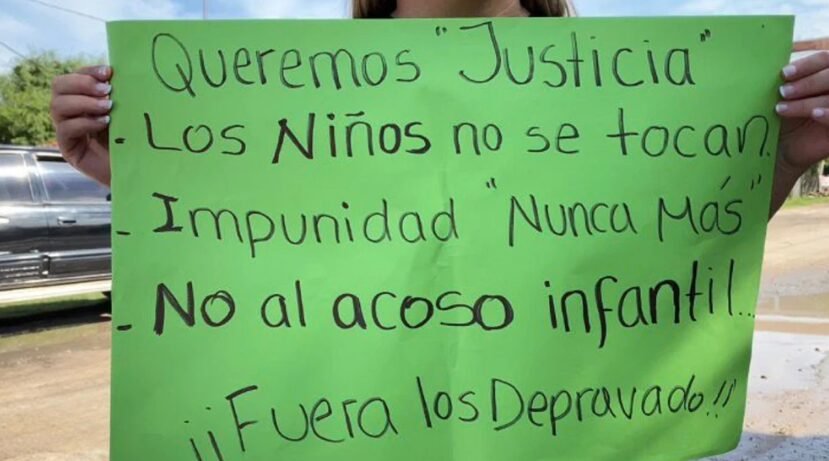 Queremos "Justicia"
- Los Niños no se tocan.
- Impunidad "Nunca Más"
- No al acoso infantil...
¡¡Fuera los Depravado!!